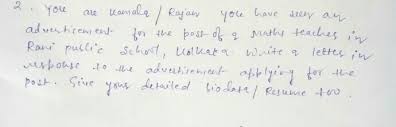 2. You are Kamala / Rajan you have seen an
advertisement for the post of a Maths teacher in
Rani public School, Kolkata write a letter in
response to the advertisement applying for the
post. Give your detailed biodata / Resume too.